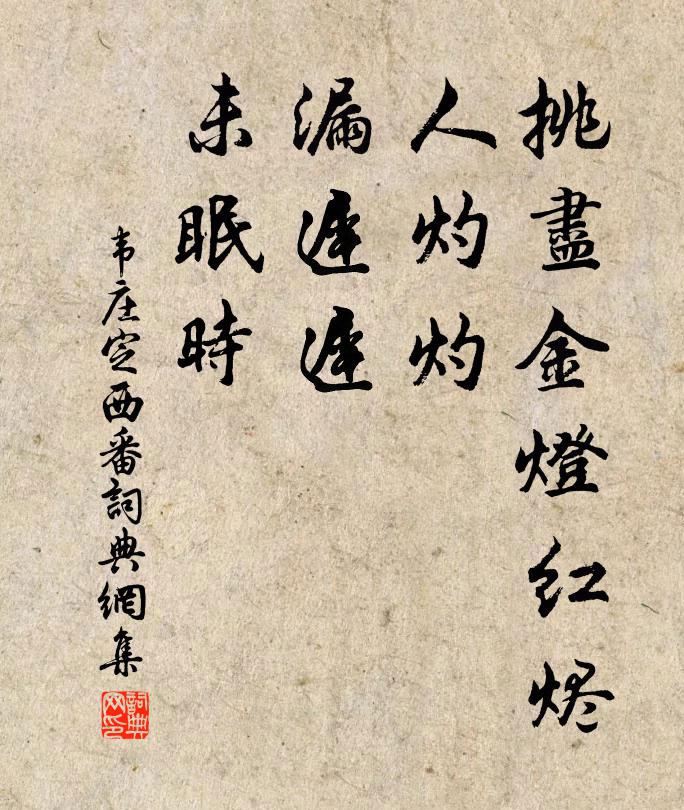 挑盡金燈红烬
人灼灼
漏遲遲
未眠時
韦庄定西番詞典網集
詞典网印